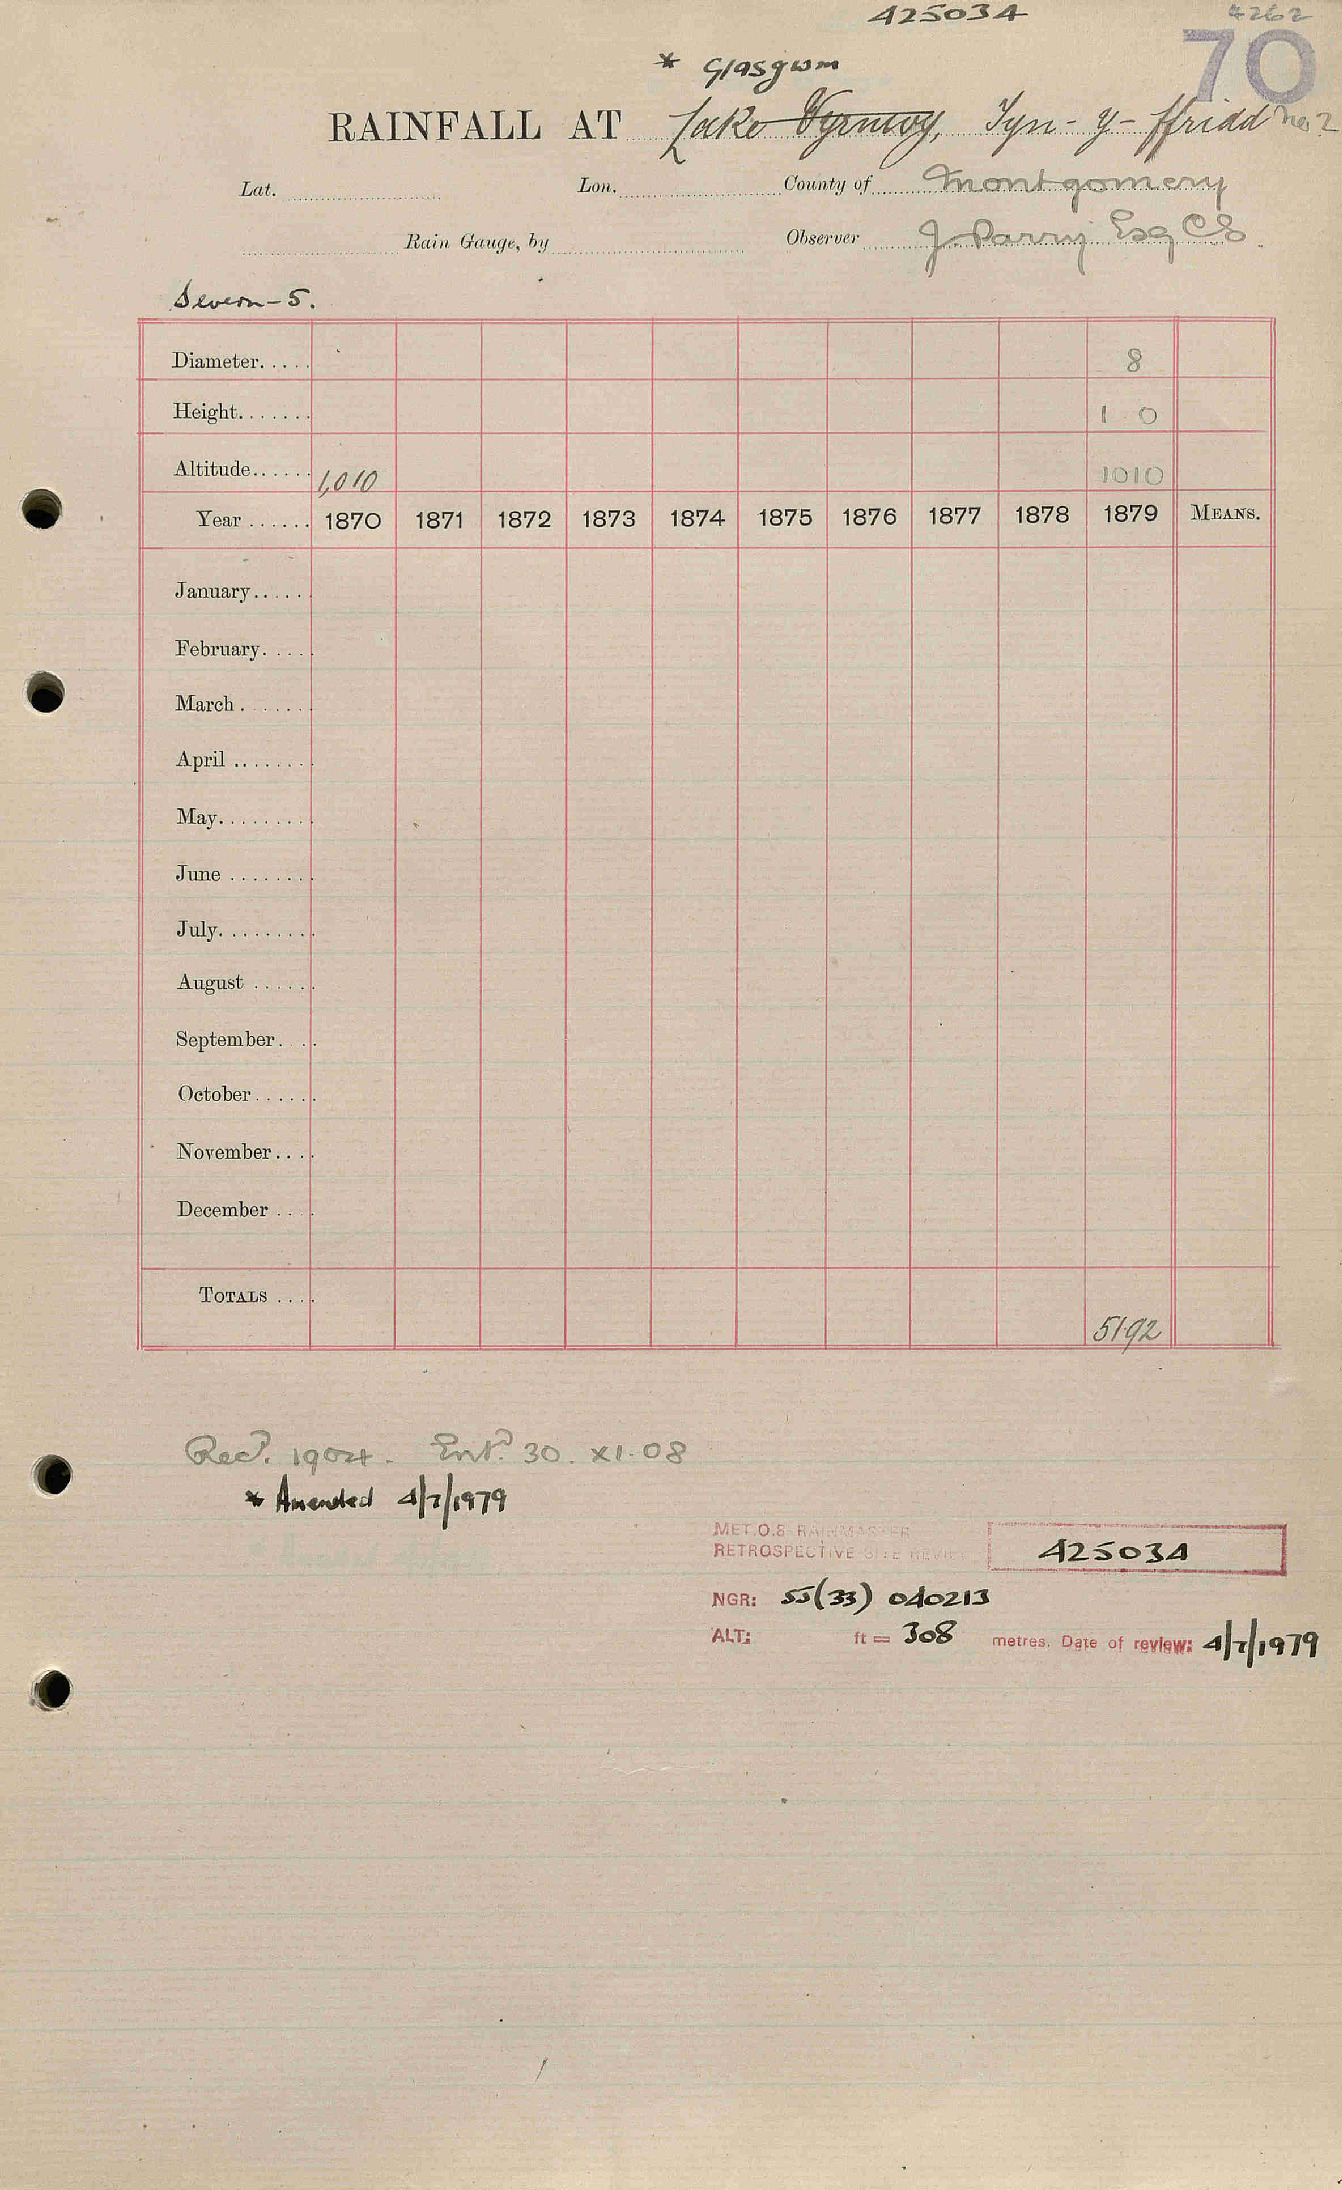 425034
4262
70
* Glasgwm
RAINFALL AT Lake Vyrnwy, Tyn-y-ffridd No 2
Lat. Lon. County of Montgomery
Rain Gauge, by Observer J. Parry Esq CE
Severn-5.
Diameter..... 8
Height....... 1 0
Altitude...... 1,010 1010
Year ...... 1870 1871 1872 1873 1874 1875 1876 1877 1878 1879 MEANS.
January.....
February.....
March.......
April .......
May.........
June ........
July.........
August ......
September....
October......
November....
December ...
TOTALS ....
51.92
Recd. 1904. Entd. 30. XI. 08
* Amended 4/7/1979
MET.O.8 RAINMASTER
RETROSPECTIVE SITE REVIEW 425034
NGR: SJ(33) 040213
ALT: ft = 308 metres. Date of review: 4/7/1979